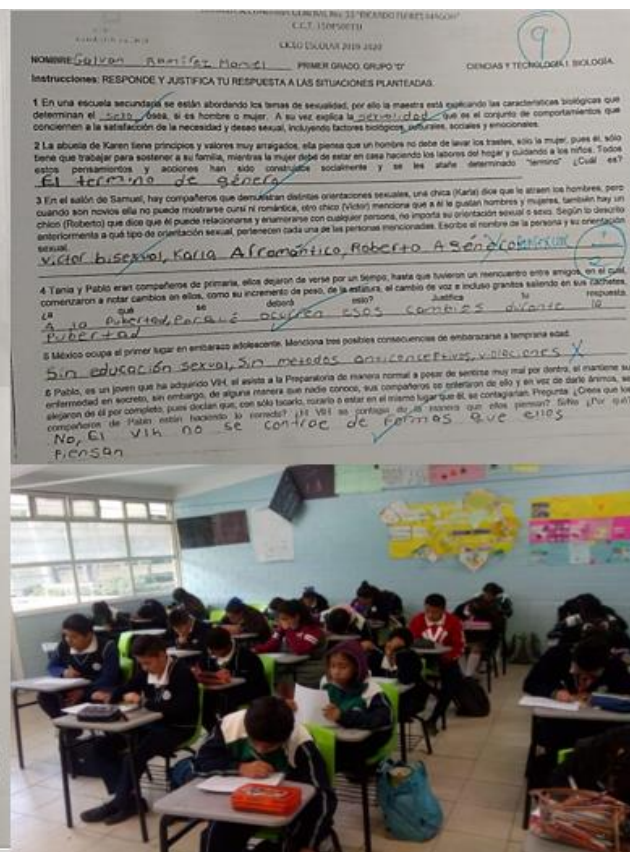 C.C.T.
CICLO ESCOLAR 2019-2020
9
NOMBRE: Galvan Ramírez Manuel PRIMER GRADO. GRUPO "D" CIENCIAS Y TECNOLOGÍA I. BIOLOGÍA.
Instrucciones: RESPONDE Y JUSTIFICA TU RESPUESTA A LAS SITUACIONES PLANTEADAS.
1 En una escuela secundaria se están abordando los temas de sexualidad, por ello la maestra está explicando las características biológicas que
determinan el sexo, ósea, si es hombre o mujer. A su vez explica la sexualidad que es el conjunto de comportamientos que
conciernen a la satisfacción de la necesidad y deseo sexual, incluyendo factores biológicos, culturales, sociales y emocionales.
2 La abuela de Karen tiene principios y valores muy arraigados, ella piensa que un hombre no debe de lavar los trastes, sólo la mujer, pues él, sólo
tiene que trabajar para sostener a su familia, mientras la mujer debe de estar en casa haciendo los labores del hogar y cuidando a los niños. Todos
estos pensamientos y acciones han sido construidos socialmente y se les atañe determinado "termino" ¿Cuál es?
El termino de género
3 En el salón de Samuel, hay compañeros que demuestran distintas orientaciones sexuales, una chica (Karla) dice que le atraen los hombres, pero
cuando son novios ella no puede mostrarse cursi ni romántica, otro chico (Víctor) menciona que a él le gustan hombres y mujeres, también hay un
chico (Roberto) que dice que él puede relacionarse y enamorarse con cualquier persona, no importa su orientación sexual o sexo. Según lo descrito
anteriormente a qué tipo de orientación sexual, pertenecen cada una de las personas mencionadas. Escribe el nombre de la persona y su orientación
sexual.
Victor bisexual, Karla Arromántico, Roberto
4 Tania y Pablo eran compañeros de primaria, ellos dejaron de verse por un tiempo, hasta que tuvieron un reencuentro entre amigos, en el cual,
comenzaron a notar cambios en ellos, como su incremento de peso, de la estatura, el cambio de voz e incluso granitos saliendo en sus cachetes.
¿A qué se deberá esto? Justifica tu respuesta.
A la Pubertad, Porqué ocurren esos cambios durante la
Pubertad
5 México ocupa el primer lugar en embarazo adolescente. Menciona tres posibles consecuencias de embarazarse a temprana edad.
Sin educación sexual, Sin metodos anticonceptivos, violaciones
6 Pablo, es un joven que ha adquirido VIH, él asiste a la Preparatoria de manera normal a pesar de sentirse muy mal por dentro, él mantiene su
enfermedad en secreto, sin embargo, de alguna manera que nadie conoce, sus compañeros se enteraron de ello y en vez de darle ánimos, se
alejaron de él por completo, pues decían que, con sólo tocarlo, rozarlo o estar en el mismo lugar que él, se contagiarían. Pregunta ¿Crees que los
compañeros de Pablo están haciendo lo correcto? ¿El VIH se contagia de la manera que ellos piensan? Si/No ¿Por qué?
No, El VIH no se contrae de formas que ellos
Piensan